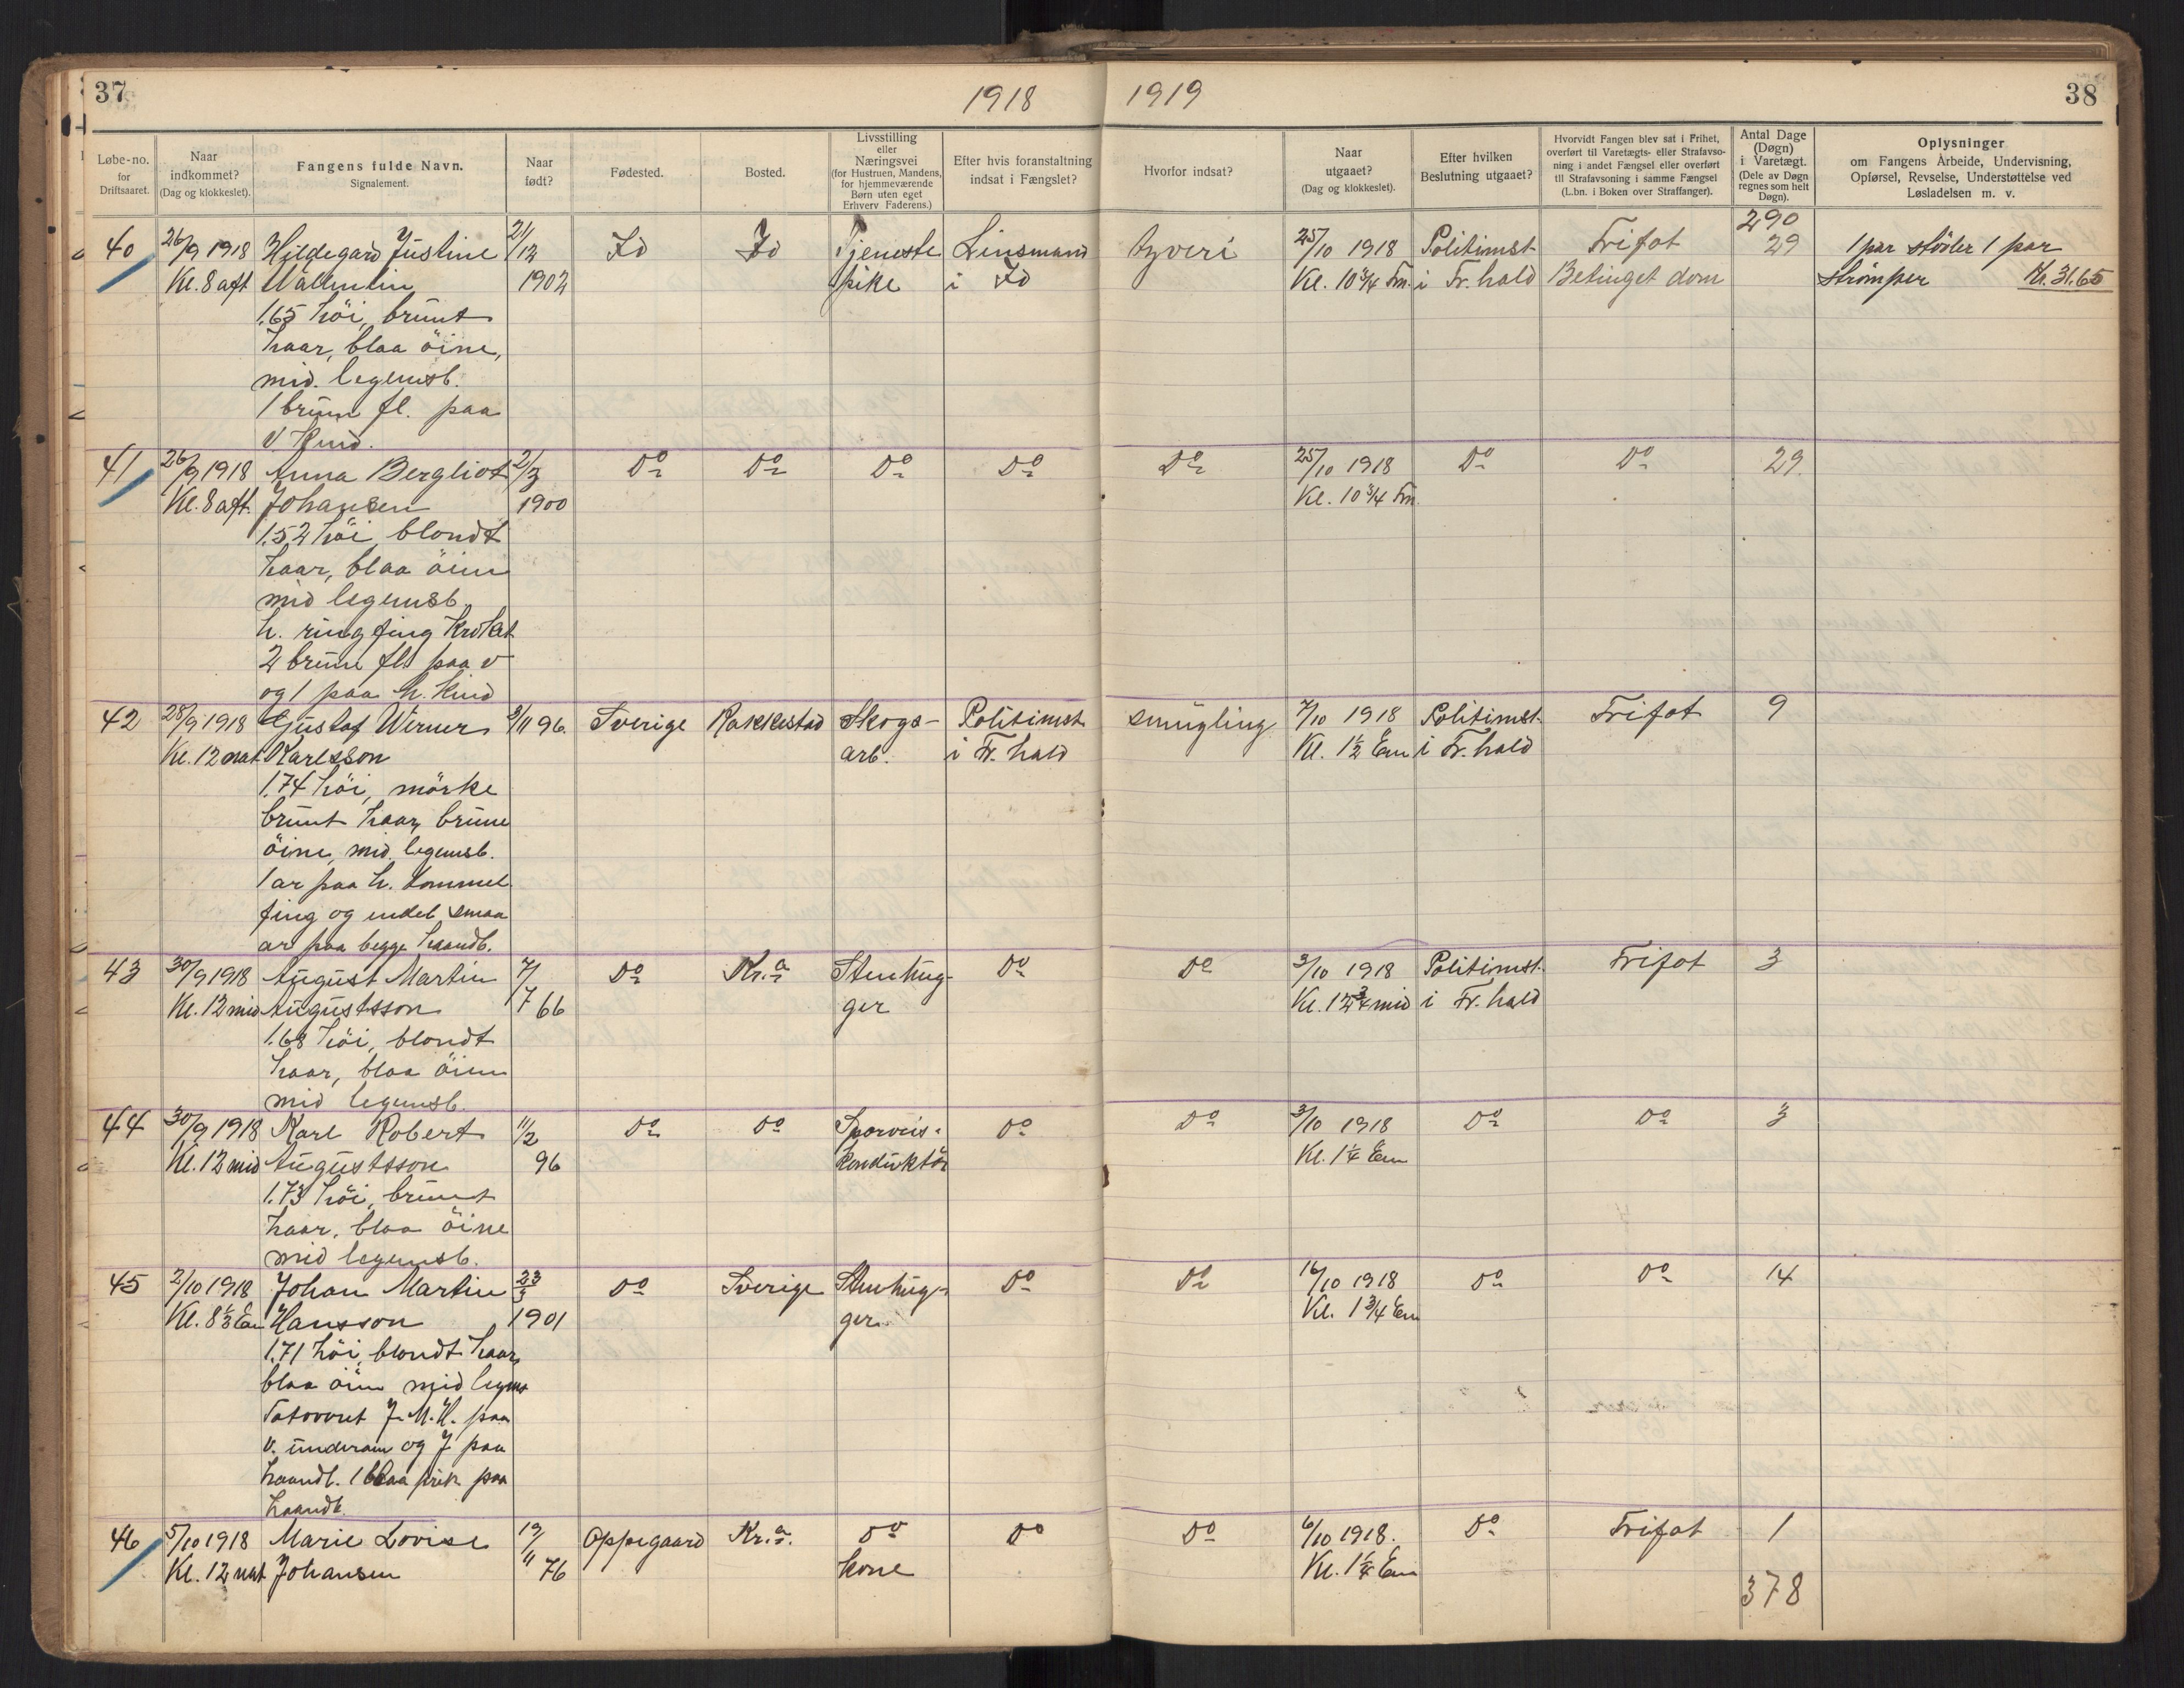 37
1918
1919
38
Løbe-no. for Driftsaaret.
Naar indkommet? (Dag og klokkeslet).
Fangens fulde Navn. Signalement.
Naar født?
Fødested.
Bosted.
Livsstilling eller Næringsvei (for Hustruen, Mandens, for hjemmeværende Børn uten eget Erhverv Faderens.)
Efter hvis foranstaltning indsat i Fængslet?
Hvorfor indsat?
Naar utgaaet? (Dag og klokkeslet).
Efter hvilken Beslutning utgaaet?
Hvorvidt Fangen blev sat i Frihet, overført til Varetægts- eller Strafavsoning i andet Fængsel eller overført til Strafavsoning i samme Fængsel (L.bn. i Boken over Straffanger).
Antal Dage (Døgn) i Varetægt. (Dele av Døgn regnes som helt Døgn).
Oplysninger om Fangens Arbeide, Undervisning, Opførsel, Revselse, Understøttelse ved Løsladelsen m. v.
290
40 26/9 1918 Hildegard Justine 21/12 Id Id Tjeneste Linsmand tyveri 25/10 1918 Politimst. Trifot 29 1 par støvler 1 par
Kl. 8 aft 1902 pike i Id Kl. 10 3/4 Fm. i Fr. hald Betinget dom strømper Kr. 31.65
1.65 höi, brunt
haar, blaa öine,
mid. legemsb.
1 brun fl. paa
v Kind.
41 26/9 1918 Anna Bergliot 2/3 Do Do Do Do Do 25/10 1918 Do Do 29
Kl. 8 aft. Johansen 1900 Kl. 10 3/4 Fm.
1.52 höi, blondt
haar, blaa öine
mid legemsb.
h. ringfing Kroket
2 brune fl. paa v
og 1 paa h. Kind
42 28/9 1918 Gustaf Werner 3/11 96. Sverige Rakkestad Skogs- Politimst. smugling 7/10 1918 Politimst. Trifot 9
Kl. 12 nat Karlsson arb. i Fr. hald Kl. 1 1/2 Em i Fr. hald
1.74 höi, mörke
brunt haar, brune
öine, mid. legemsb.
1 ar paa h. tommel
fing og endel smaa
ar paa begge haandb.
43 30/9 1918 August Martin 7/7 66 Do Kr.a Stenhug- Do Do 3/10 1918 Politimst. Trifot 3
Kl. 12 mid Augustsson ger Kl. 12 3/4 mid i Fr. hald
1.68 höi, blondt
haar, blaa öine
mid legemsb.
44 30/9 1918 Karl Robert 11/2 Do Do Sporveis- Do Do 3/10 1918 Do Do 3
Kl. 12 mid Augustsson 96 Konduktör Kl. 1 1/4 Em
1.73 höi, brunt
haar, blaa öine
mid legemsb.
45 2/10 1918 Johan Martin 23/3 Do Sverige Stenhug- Do Do 16/10 1918 Do Do 14
Kl. 8 1/2 Em Hansson 1901 ger Kl. 1 3/4 Em
1.71 höi, blondt haar,
blaa öine mid legems
Tatoveret J. M. H. paa
v. underarm og J paa
haandl. 1 blaa prik paa
haandb.
46 5/10 1918 Marie Lovise 19/11 Oppegaard Kr.a. Do Do Do 6/10 1918. Do Trifot 1
Kl. 12 nat Johansen 76 Kone Kl. 1 1/4 Em
378